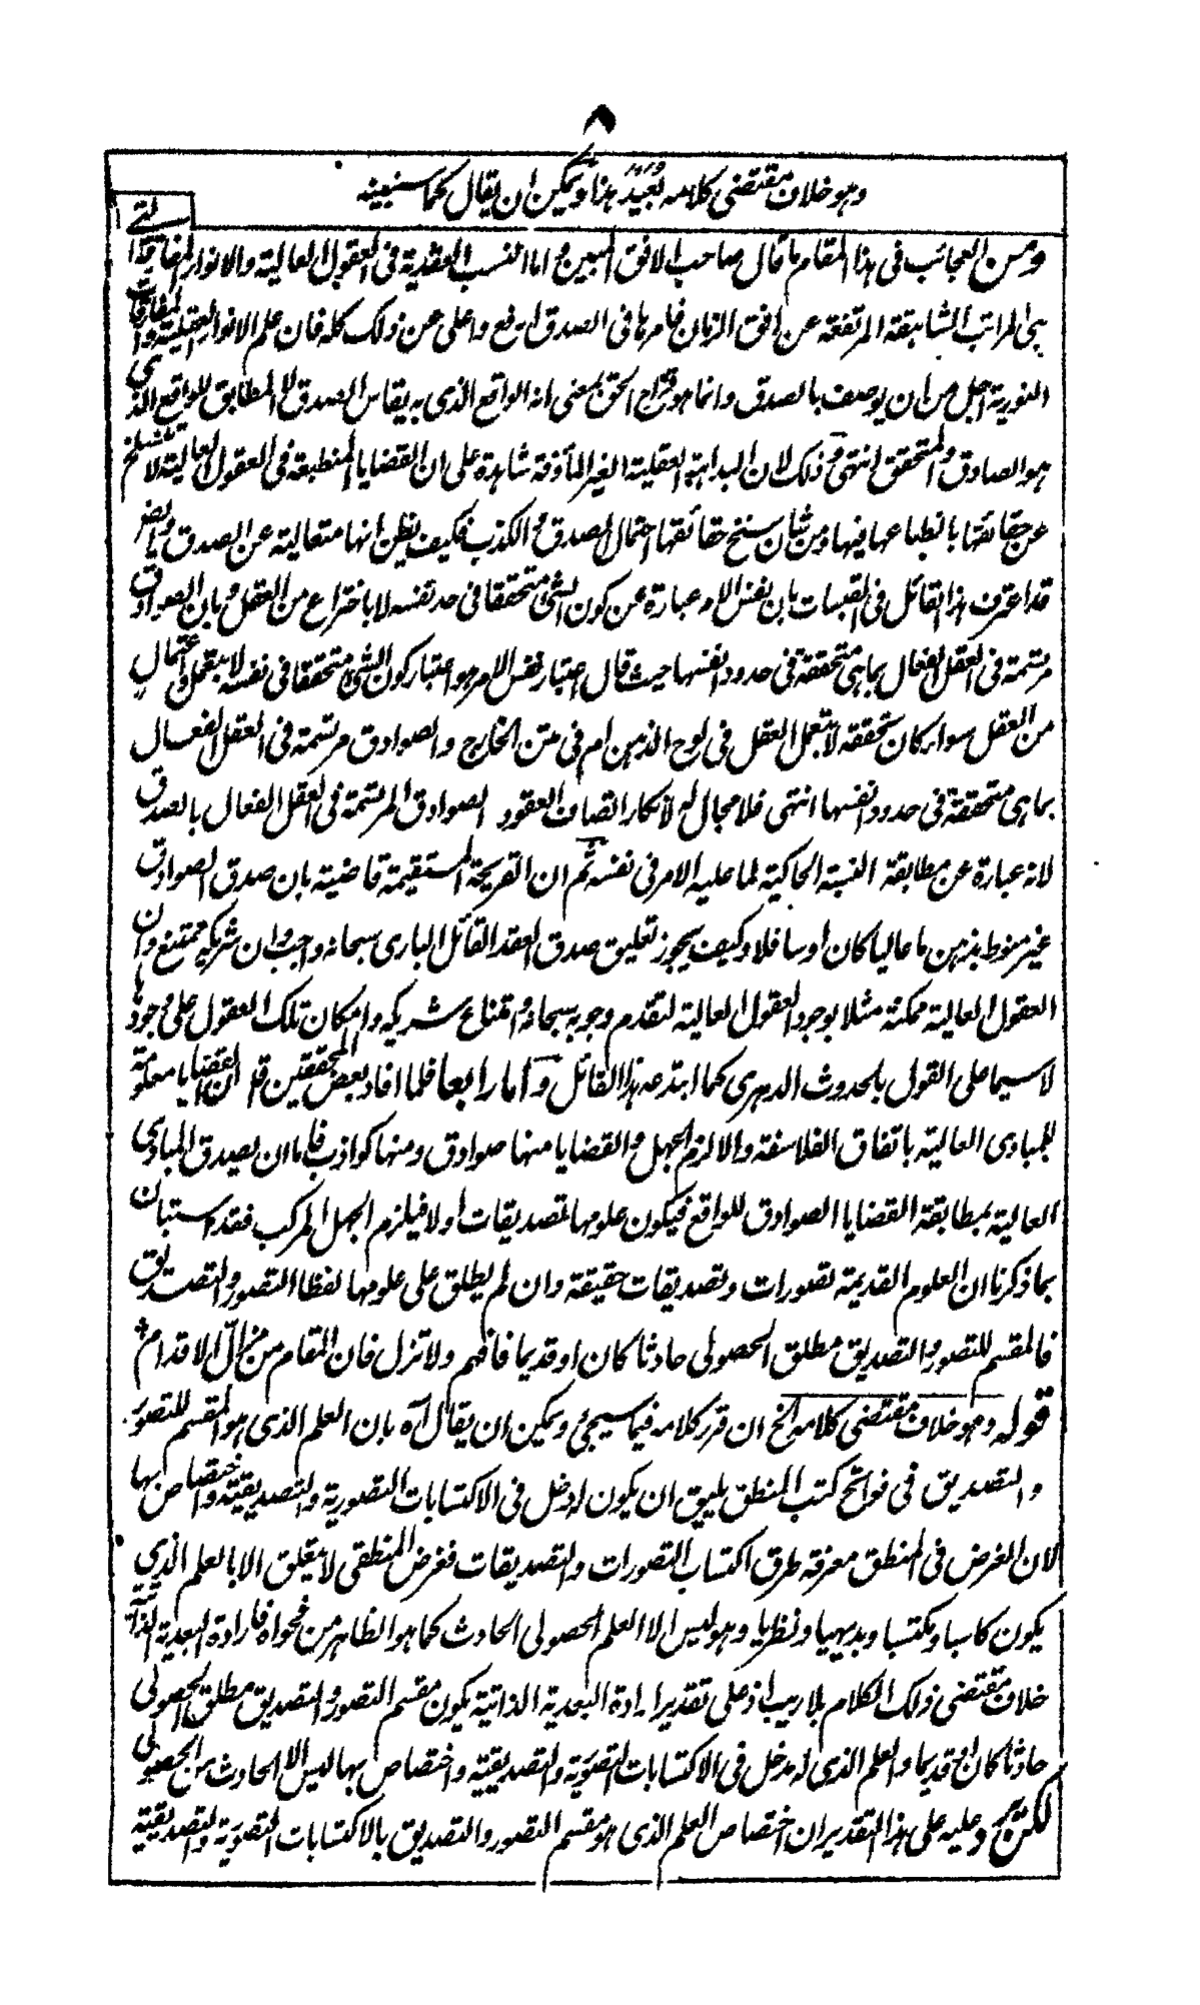 ٨
وهو خلاف مقتضى كلامه بعيد هذا ويمكن ان يقال كما سنبينه
ومن العجائب في هذا المقام ما قال صاحب الافق المبين واما النسب العقدية في العقول العالية والانوار المفارقة
المراتب الشاهقة المرتفعة عن افق الزمان فامرها في الصدق ارفع واعلى عن ذلك كله فان علم الانوار العقلية
النورية اجل من ان يوصف بالصدق وانما هو قراح الحق بمعنى انه الواقع الذي به يقاس الصدق لا المطابق للواقع الذي
هو الصادق والمتحقق انتهى وذلك لان البداهة العقلية الغير المأوفة شاهدة على ان القضايا المنطبعة في العقول العالية لا تنسلخ
عن حقائقها بانطباعها فيها ومن شان سنخ حقائقها احتمال الصدق والكذب فكيف يظن انها متعالية عن الصدق وايضا
قد اعترف هذا القائل في القبسات بان نفس الامر عبارة عن كون الشئ متحققا في حد نفسه لا باختراع من العقل وبان الصوادق
مرتسمة في العقل الفعال بما هي متحققة في حدود انفسها حيث قال اعتبار نفس الامر هو اعتبار كون الشئ متحققا في نفسه لا بتعمل واعتمال
من العقل سواء كان تحققه لا بتعمل العقل في لوح الذهن ام في متن الخارج والصوادق مرتسمة في العقل الفعال
بما هي متحققة في حدود انفسها انتهى فلا مجال له لانكار اتصاف العقود الصوادق المرتسمة في العقل الفعال بالصدق
لانه عبارة عن مطابقة النسبة الحاكية لما عليه الامر في نفسه ثم ان القريحة المستقيمة قاضية بان صدق الصوادق
غير منوط بذهن ما عاليا كان او سافلا وكيف يجوز تعليق صدق العقد القائل الباري سبحانه واجب وان شريكه ممتنع وان
العقول العالية ممكنة مثلا بوجود العقول العالية لتقدم وجوبه سبحانه وامتناع شريكه وامكان تلك العقول على وجودها
لا سيما على القول بالحدوث الدهري كما ابتدعه هذا القائل واما رابعا فلما افاد بعض المحققين ان القضايا معلومة
للمبادى العالية باتفاق الفلاسفة والا لزم الجهل والقضايا منها صوادق ومنها كواذب فاما ان يصدق المبادى
العالية بمطابقة القضايا الصوادق للواقع فيكون علومها تصديقات او لا فيلزم الجهل المركب فقد استبان
بما ذكرنا ان العلوم القديمة تصورات وتصديقات حقيقة وان لم يطلق على علومها لفظا التصور والتصديق
فالمقسم للتصور والتصديق مطلق الحصولى حادثا كان او قديما فافهم ولا تزل فان المقام من مزال الاقدام
قوله وهو خلاف مقتضى كلامه الخ ان قرر كلامه فيما سيجئ ويمكن ان يقال اه بان العلم الذي هو المقسم للتصور
والتصديق في فواتح كتب المنطق يليق ان يكون له دخل في الاكتسابات التصورية والتصديقية واختصاص بها
لان الغرض في المنطق معرفة طرق اكتساب التصورات والتصديقات فغرض المنطقى لا يتعلق الا بالعلم الذي
يكون كاسبا ومكتسبا وبديهيا ونظريا وهو ليس الا العلم الحصولى الحادث كما هو الظاهر من فحواه فارادة البعدية الذاتية
خلاف مقتضى ذلك الكلام بلا ريب اذ على تقدير ارادة البعدية الذاتية يكون مقسم التصور والتصديق مطلق الحصولى
حادثا كان او قديما والعلم الذي له دخل في الاكتسابات التصورية والتصديقية واختصاص بها ليس الا الحادث من الحصولى
لكن يرد عليه على هذا التقدير ان اختصاص العلم الذي هو مقسم التصور والتصديق بالاكتسابات التصورية والتصديقية